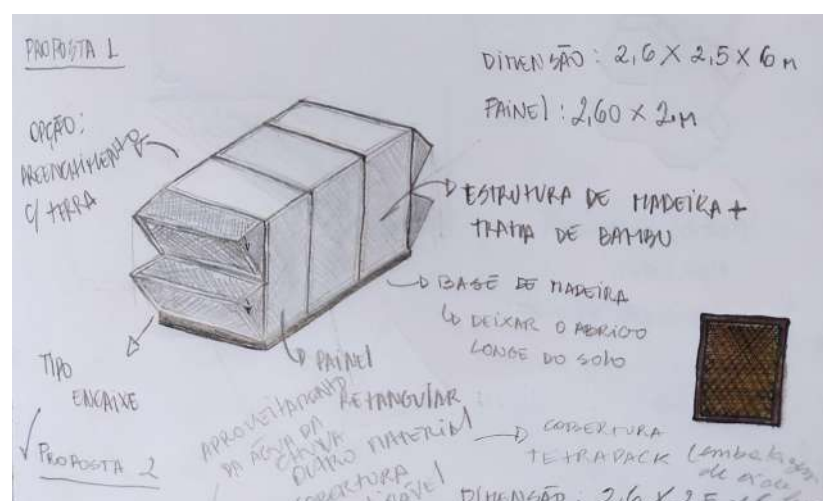 PROPOSTA 1
DIMENSÃO: 2,6 X 2,5 X 6 M
PAINEL: 2,60 X 2M
OPÇÃO:
PREENCHIMENTO
C/ TERRA
ESTRUTURA DE MADEIRA +
TRAMA DE BAMBU
BASE DE MADEIRA
DEIXAR O ABRIGO
LONGE DO SOLO
TIPO
ENCAIXE
PAINEL
RETANGULAR
APROVEITAMENTO
DA ÁGUA DA
CHUVA
OUTRO MATERIAL
COBERTURA
COBERTURA
TETRAPACK
PROPOSTA 2
DIMENSÃO: 2,6 X 2,5